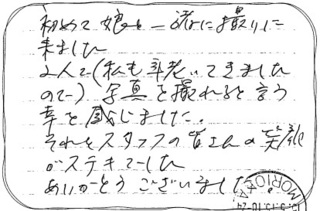 初めて娘と一緒に撮りに
来ました
2人で(私も年老いてきました
ので) 写真を撮れると言う
幸を感じました。
それとスタッフの皆さんの笑顔
がステキでした
ありがとうございました
MORIOKA